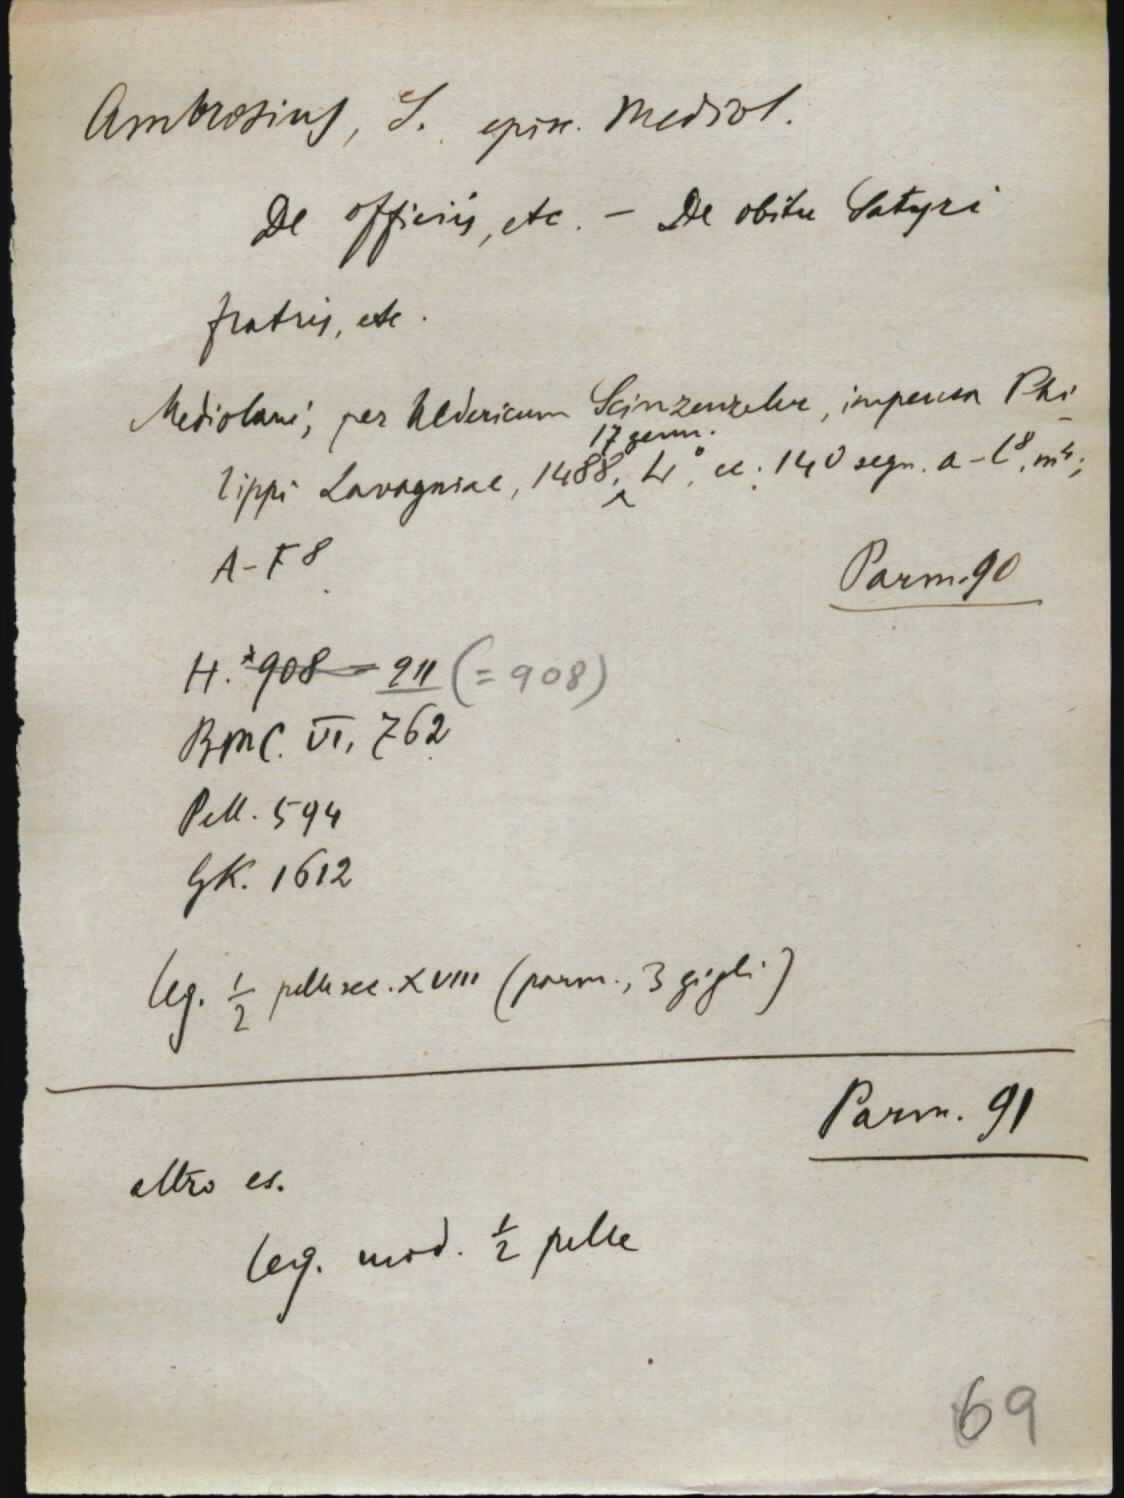 Ambrosius, S. episc. Mediol.
De officiis, etc. – De obitu Satyri
fratris, etc.
Mediolani, per Uldericum Scinzenzeler, impensa Phi-
17 genn.
lippi Lavagniae, 1488, 4°, cc. 140 segn. a-l⁸, m⁴;
A-F⁸
Parm. 90
H. *908 = 911 (= 908)
BMC. VI, 762
Pell. 594
GK. 1612
Leg. 1/2 pelle sec. XVIII (parm., 3 gigli)
Parm. 91
altro es.
Leg. mod. 1/2 pelle
69